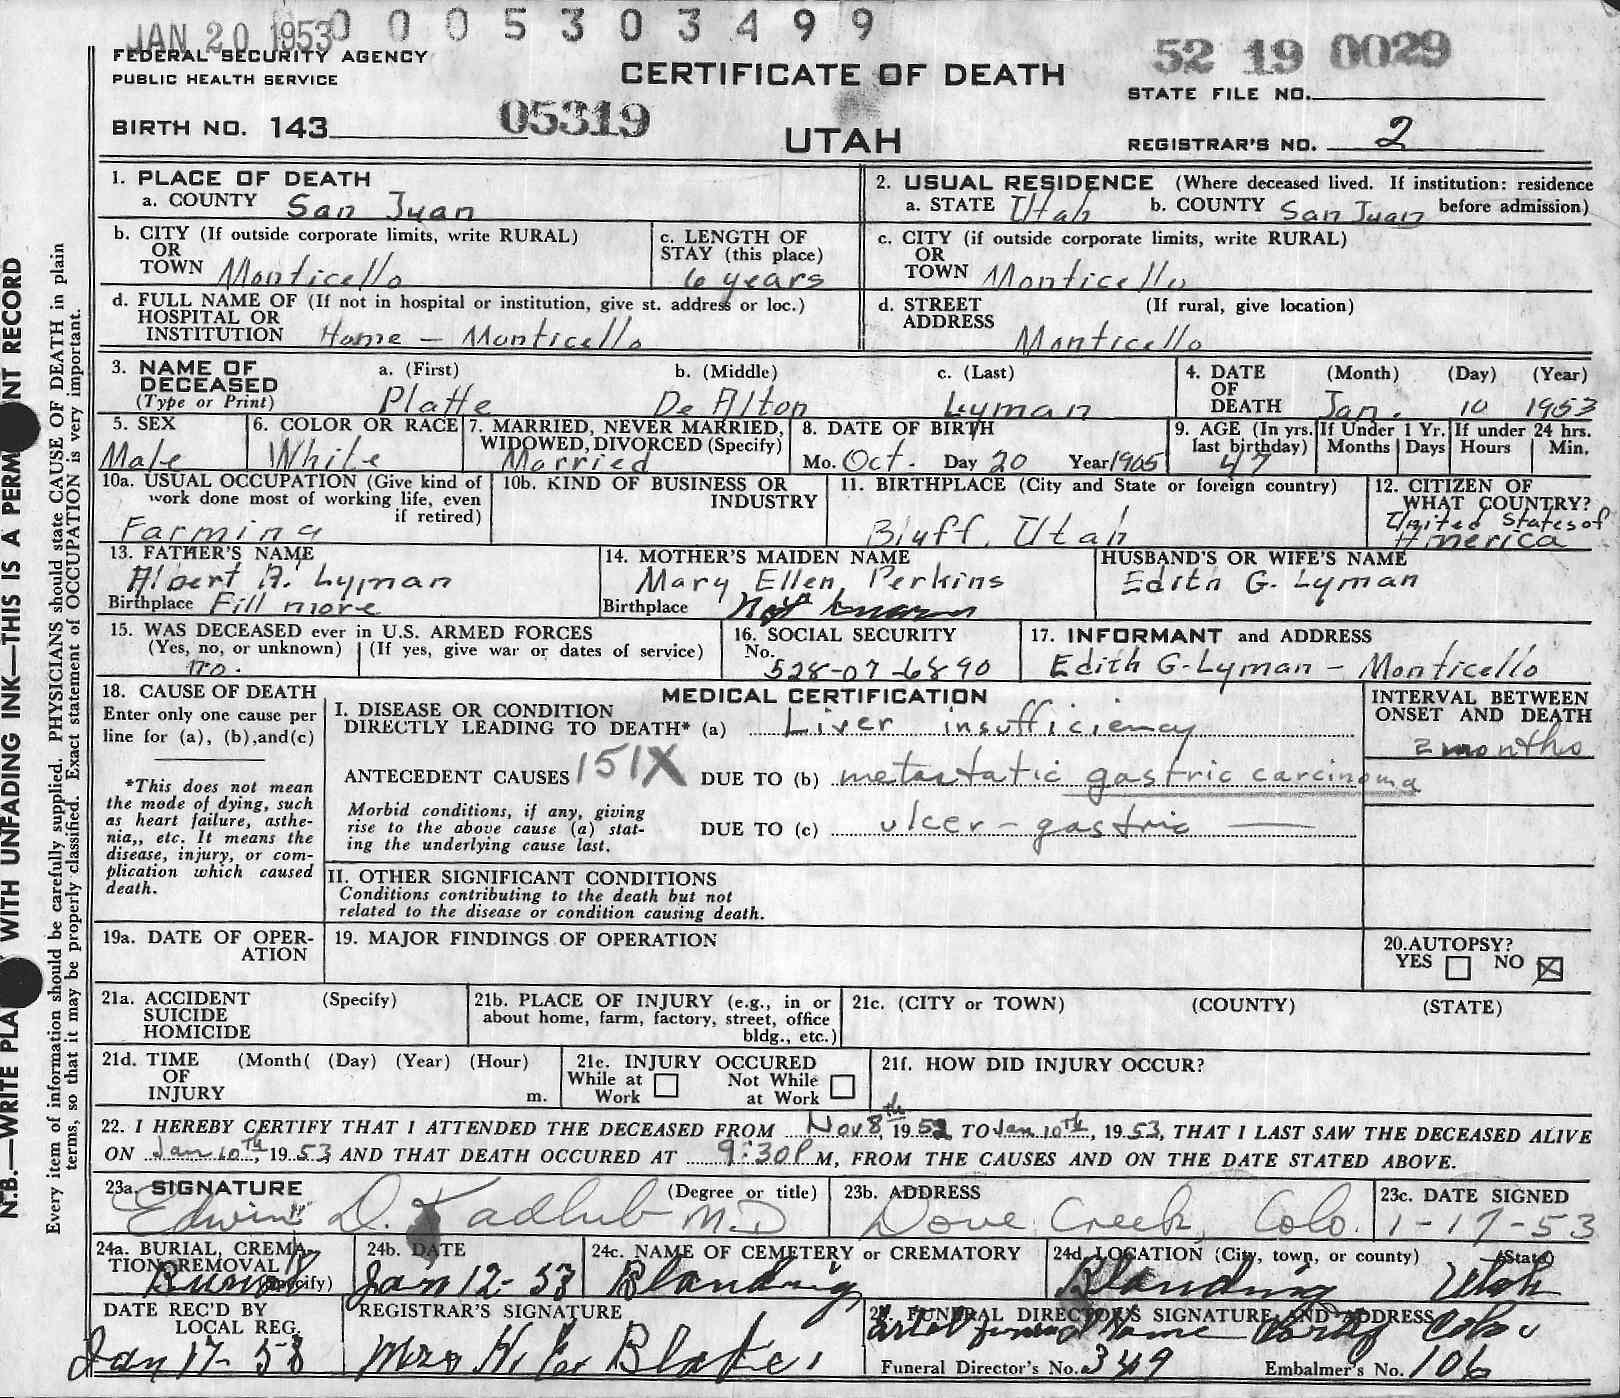 JAN 20 1953 0 0 0 5 3 0 3 4 9 9
FEDERAL SECURITY AGENCY
PUBLIC HEALTH SERVICE
CERTIFICATE OF DEATH
52 19 0029
STATE FILE NO.
BIRTH NO. 143 05319
UTAH
REGISTRAR'S NO. 2
1. PLACE OF DEATH
a. COUNTY San Juan
2. USUAL RESIDENCE (Where deceased lived. If institution: residence
a. STATE Utah b. COUNTY San Juan before admission)
b. CITY (If outside corporate limits, write RURAL)
OR
TOWN Monticello
c. LENGTH OF
STAY (this place)
6 years
c. CITY (if outside corporate limits, write RURAL)
OR
TOWN Monticello
d. FULL NAME OF (If not in hospital or institution, give st. address or loc.)
HOSPITAL OR
INSTITUTION Home - Monticello
d. STREET (If rural, give location)
ADDRESS
Monticello
3. NAME OF DECEASED
(Type or Print)
a. (First) b. (Middle) c. (Last)
Platte De Alton Lyman
4. DATE OF DEATH (Month) (Day) (Year)
Jan. 10 1953
5. SEX
Male
6. COLOR OR RACE
White
7. MARRIED, NEVER MARRIED,
WIDOWED, DIVORCED (Specify)
Married
8. DATE OF BIRTH
Mo. Oct. Day 20 Year 1905
9. AGE (In yrs. last birthday)
47
If Under 1 Yr.
Months Days
If under 24 hrs.
Hours Min.
10a. USUAL OCCUPATION (Give kind of
work done most of working life, even
if retired)
Farming
10b. KIND OF BUSINESS OR
INDUSTRY
11. BIRTHPLACE (City and State or foreign country)
Bluff, Utah
12. CITIZEN OF
WHAT COUNTRY?
United States of
America
13. FATHER'S NAME
Albert R. Lyman
Birthplace Fillmore
14. MOTHER'S MAIDEN NAME
Mary Ellen Perkins
Birthplace Not known
HUSBAND'S OR WIFE'S NAME
Edith G. Lyman
15. WAS DECEASED ever in U.S. ARMED FORCES
(Yes, no, or unknown) (If yes, give war or dates of service)
no.
16. SOCIAL SECURITY
No.
528-07-6890
17. INFORMANT and ADDRESS
Edith G. Lyman - Monticello
18. CAUSE OF DEATH
Enter only one cause per
line for (a), (b),and(c)
*This does not mean
the mode of dying, such
as heart failure, asthe-
nia,, etc. It means the
disease, injury, or com-
plication which caused
death.
MEDICAL CERTIFICATION
I. DISEASE OR CONDITION
DIRECTLY LEADING TO DEATH* (a) Liver insufficiency
ANTECEDENT CAUSES 151X DUE TO (b) metastatic gastric carcinoma
Morbid conditions, if any, giving
rise to the above cause (a) stat-
ing the underlying cause last.
DUE TO (c) ulcer - gastric
INTERVAL BETWEEN
ONSET AND DEATH
2 months
II. OTHER SIGNIFICANT CONDITIONS
Conditions contributing to the death but not
related to the disease or condition causing death.
19a. DATE OF OPER-
ATION
19. MAJOR FINDINGS OF OPERATION
20.AUTOPSY?
YES NO
21a. ACCIDENT (Specify)
SUICIDE
HOMICIDE
21b. PLACE OF INJURY (e.g., in or
about home, farm, factory, street, office
bldg., etc.)
21c. (CITY or TOWN) (COUNTY) (STATE)
21d. TIME (Month( (Day) (Year) (Hour)
OF
INJURY m.
21e. INJURY OCCURED
While at Work Not While at Work
21f. HOW DID INJURY OCCUR?
22. I HEREBY CERTIFY THAT I ATTENDED THE DECEASED FROM Nov 8th, 1952 TO Jan 10th, 1953, THAT I LAST SAW THE DECEASED ALIVE
ON Jan 10th, 1953, AND THAT DEATH OCCURED AT 9:30P M, FROM THE CAUSES AND ON THE DATE STATED ABOVE.
23a. SIGNATURE (Degree or title)
Edwin D. Kadlub M.D
23b. ADDRESS
Dove Creek, Colo.
23c. DATE SIGNED
1-17-53
24a. BURIAL, CREMA-
TION, REMOVAL (Specify)
Burial
24b. DATE
Jan 12-53
24c. NAME OF CEMETERY or CREMATORY
Blanding
24d. LOCATION (City, town, or county) (State)
Blanding Utah
DATE REC'D BY
LOCAL REG.
Jan 17-53
REGISTRAR'S SIGNATURE
Mrs Blake
FUNERAL DIRECTOR'S SIGNATURE AND ADDRESS
Ertel Funeral Home Cortez Colo
Funeral Director's No. 349 Embalmer's No. 106
N.B.—WRITE PLA WITH UNFADING INK—THIS IS A PERM NT RECORD
Every item of information should be carefully supplied. PHYSICIANS should state CAUSE OF DEATH in plain
terms, so that it may be properly classified. Exact statement of OCCUPATION is very important.